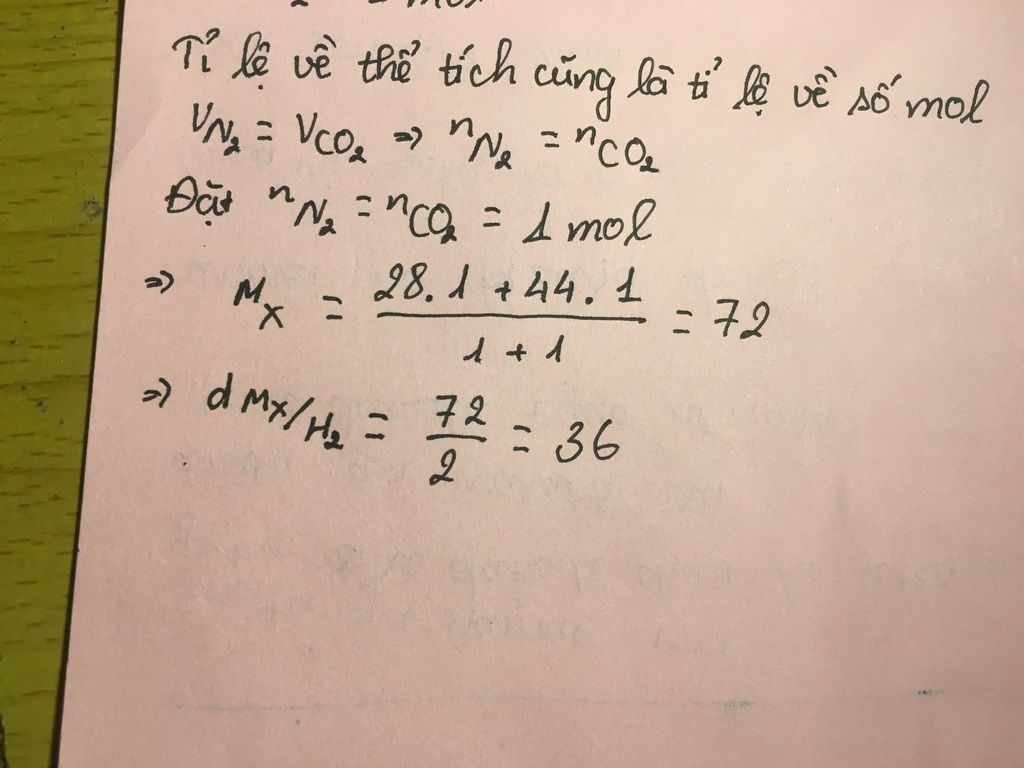 Tỉ lệ về thể tích cũng là tỉ lệ về số mol
V_N₂ = V_CO₂ => n_N₂ = n_CO₂
Đặt n_N₂ = n_CO₂ = 1 mol
=> M_X = (28.1 + 44.1)/(1 + 1) = 72
=> d M_X/H₂ = 72/2 = 36